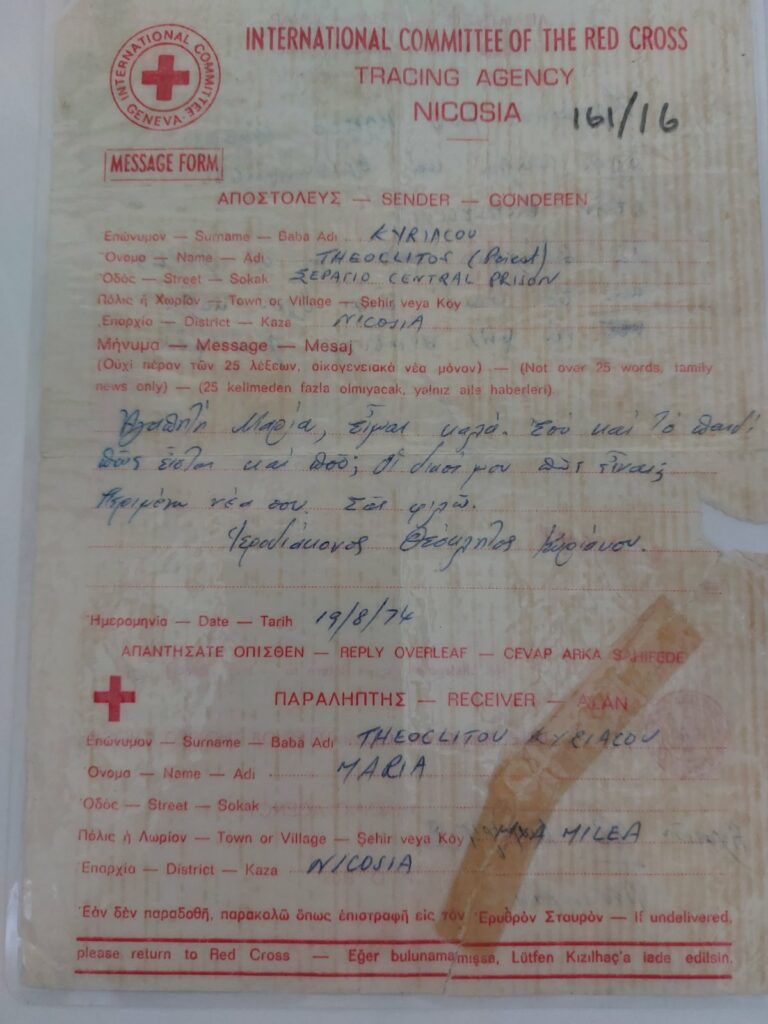 INTERNATIONAL COMMITTEE GENEVA
INTERNATIONAL COMMITTEE OF THE RED CROSS
TRACING AGENCY
NICOSIA 161/16
MESSAGE FORM
ΑΠΟΣΤΟΛΕΥΣ — SENDER — GÖNDEREN
Επώνυμον — Surname — Baba Adı KYRIACOU
Όνομα — Name — Adi THEOCLITOS (Priest)
Όδός — Street — Sokak SERAGIO CENTRAL PRISON
Πόλις ή Χωρίον — Town or Village — Şehir veya Köy
Επαρχία — District — Kaza NICOSIA
Μήνυμα — Message — Mesaj
(Ουχί πέραν τών 25 λέξεων, οικογενειακά νέα μόνον) — (Not over 25 words, family
news only) — (25 kelimeden fazla olmıyacak, yalnız aile haberleri)
Αγαπητή Μαρία, είμαι καλά. Εσύ και τό παιδί
πώς είσται και πού; Οί δικοί μου πώς είναι;
Περιμένω νέα σου. Σάς φιλώ.
Ιεροδιάκονος Θεόκλητος Κυριάκου.
Ημερομηνία — Date — Tarih 19/8/74
ΑΠΑΝΤΗΣΑΤΕ ΟΠΙΣΘΕΝ — REPLY OVERLEAF — CEVAP ARKA SAHIFEDE
ΠΑΡΑΛΗΠΤΗΣ — RECEIVER — ALAN
Επώνυμον — Surname — Baba Adı THEOCLITOU KYRIACOU
Ονομα — Name — Adı MARIA
Όδός — Street — Sokak
Πόλις ή Λωρίον — Town or Village — Şehir veya Köy MIA MILEA
Επαρχία — District — Kaza NICOSIA
Έάν δέν παραδοθή, παρακαλώ όπως έπιστραφή είς τόν Έρυθρόν Σταυρόν — If undelivered,
please return to Red Cross — Eğer bulunamamışsa, Lütfen Kızılhaç'a iade edilsin.